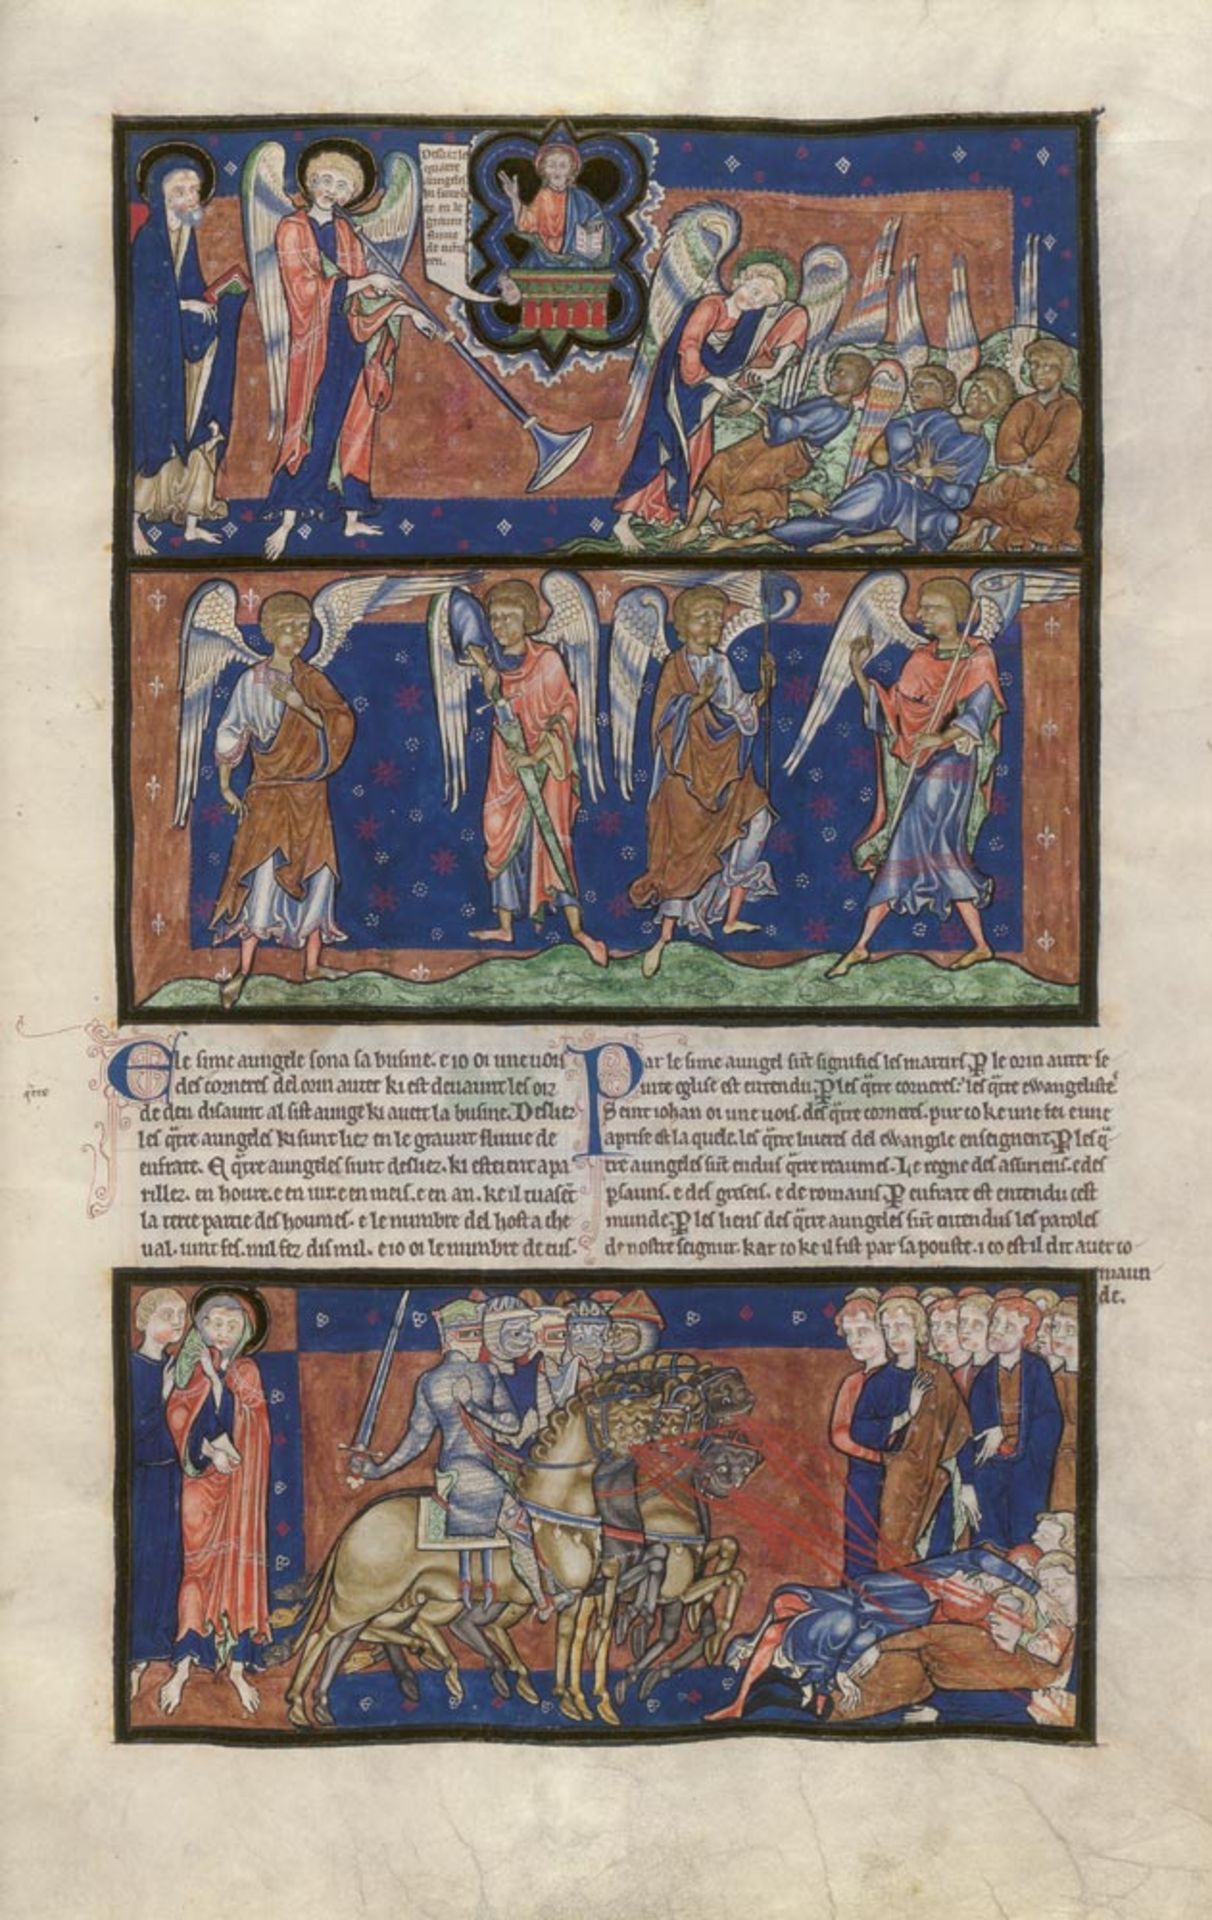 Desliez les
quatre
aungeles
ki sunt li
ez en le
graunt
fluuie
de eufra
ten.
E le sime aungele sona sa busine. e io oi une uois
des corneres del orin auter ki est deuaunt les oiz
de deu disaunt al sist aunge ki aueit la busine. Desliez
les q̃tre aungeles ki sunt liez en le graunt fluuie de
eufrate. E q̃tre aungeles sunt desliez. ki esteient apa
rillez. en houre. e en iur. e en meis. e en an. ke il tuasẽt
la terce partie des houmes. e le numbre del host a che
ual. uint fes. mil fez dis mil. e io oi le numbre de eus.
Par le sime aungel sũt signifies les martirs. P̲ le orin auter se
inte eglise est entendu. P̲ les q̃tre corneres: les q̃tre ewangelistes
Seint iohan oi une uois. des q̃tre corneres. pur co ke une fei e une
aprise est la quele. les q̃tre liueres del ewangile enseignent. P̲ les q̃
tre aungeles sũt endus q̃tre reaumes. Le regne des assiriens. e des
p̲sauns. e des grezeis. e de romains. P̲ eufrate est entendu cest
munde. P̲ les liens des q̃tre aungeles sũt entendus les paroles
de nostre seignur. kar co ke il fist par sa pouste. i co est il dit auer co
maun
de.